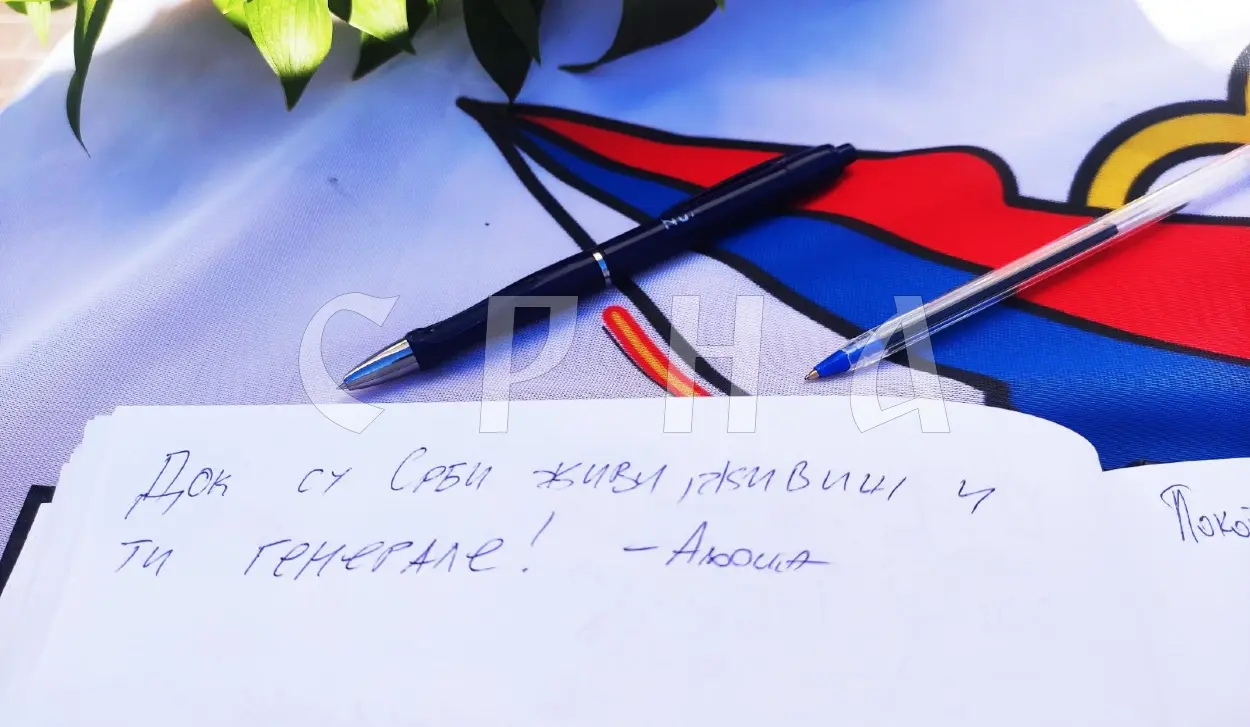 СРНА
Док су Срби живи, живиш и
ти генерале! -Аљоша
Поко